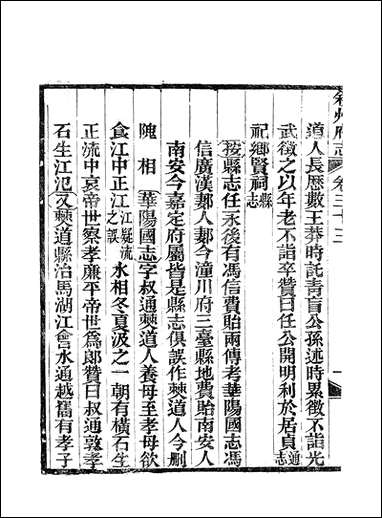 叙州府志 卷三十三
道人長厯數王莽時託青盲公孫述時累徵不詣光
武徵之以年老不詣卒贊曰任公開明利於居貞通志
祀鄉賢祠縣志
按縣志任永後有馮信費貽兩傳考華陽國志馮
信廣漢郪人郪今潼川府三臺縣地費貽南安人
南安今嘉定府屬皆是縣志俱誤作僰道人今刪
隗相 華陽國志字叔通僰道人養母至孝母欲
食江中正江江疑流之誤水相冬夏汲之一朝有橫石生
正流中哀帝世察孝廉平帝世爲郎贊曰叔通敦孝
石生江氾又僰道縣治馬湖江會水通越嶲有孝子